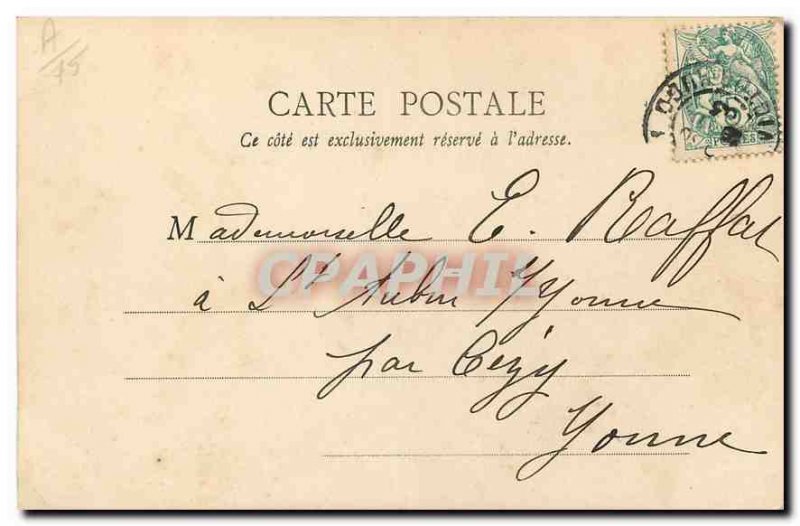 A/75
CARTE POSTALE
Ce côté est exclusivement réservé à l'adresse.
Mademoiselle E. Raffat
à St Aubin s/Yonne
par Cézy
Yonne
CPAPHIL
POSTES